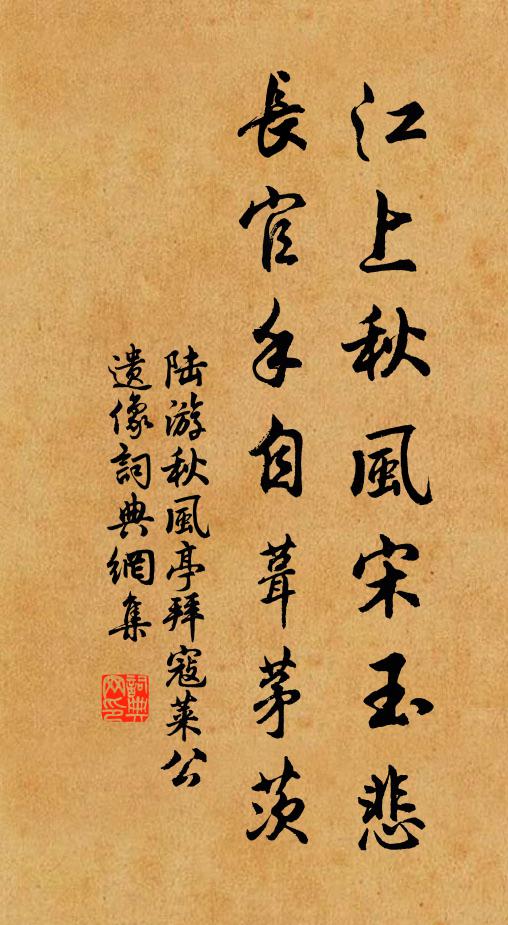 江上秋風宋玉悲
長官手自葺茅茨
陆游秋風亭拜寇莱公
遺像詞典網集
詞典
网印